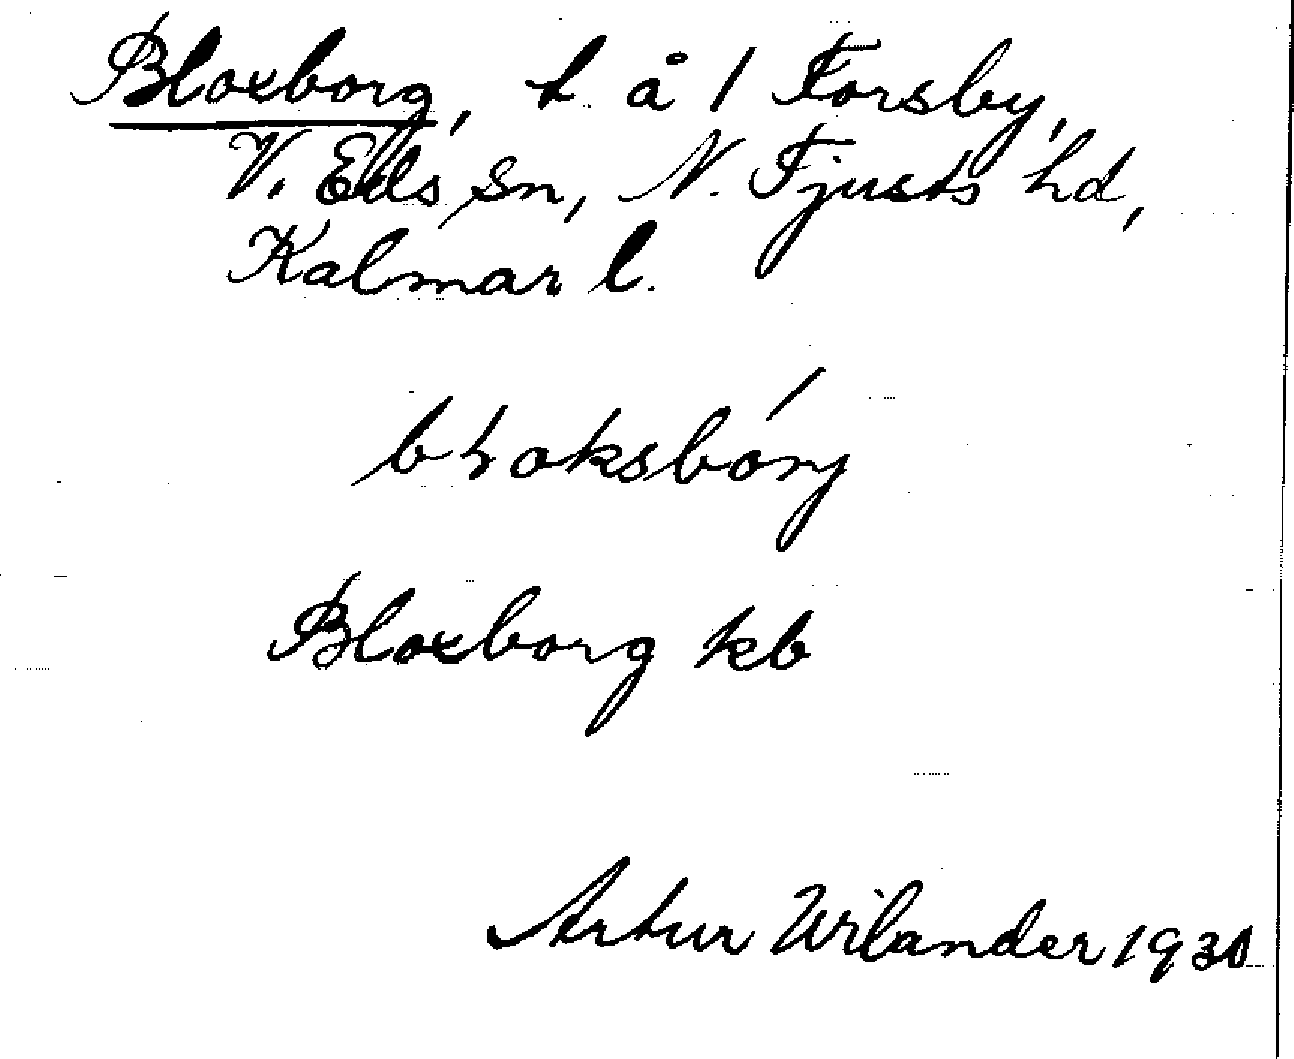 Bloxborg, t å 1 Forsby,
V. Eds sn, N. Tjusts hd,
Kalmar l.
Bloxborg kb
Artur Wilander 1930